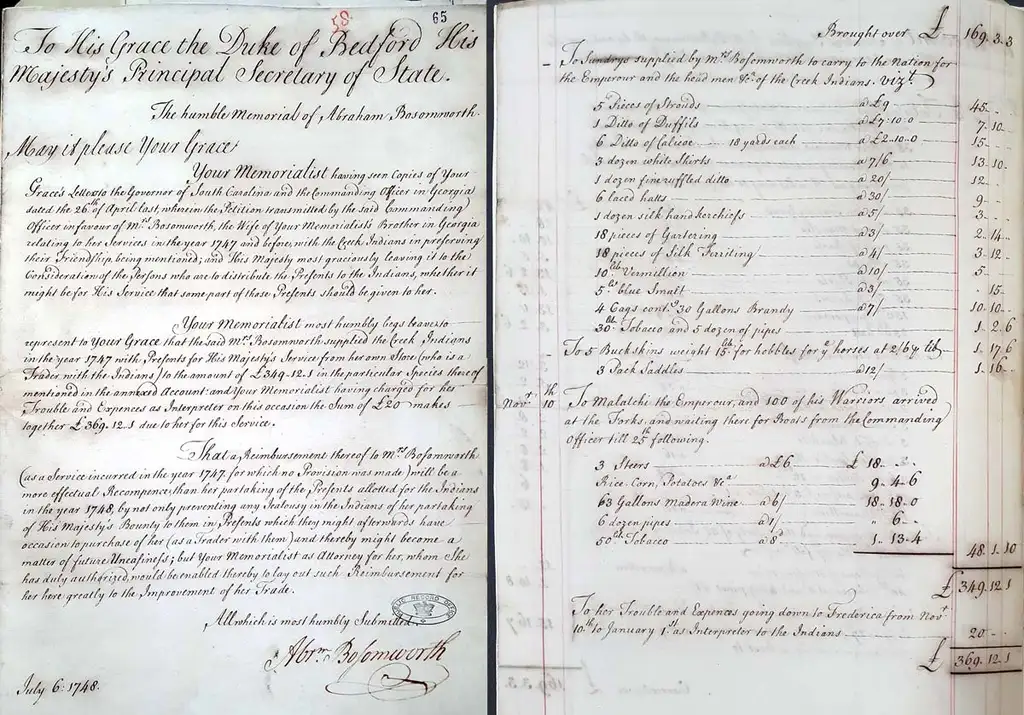 58
65
To His Grace the Duke of Bedford His
Majesty's Principal Secretary of State.
The humble Memorial of Abraham Bosomworth.
May it please Your Grace,
Your Memorialist having seen Copies of Your
Grace's Letters to the Governor of South Carolina and the Commanding Officer in Georgia
dated the 26th of April last, wherein the Petition transmitted by the said Commanding
Officer in favour of Mrs Bosomworth, the Wife of Your Memorialist's Brother in Georgia
relating to her Services in the year 1747 and before, with the Creek Indians in preserving
their Friendship, being mentioned; and His Majesty most graciously leaving it to the
Consideration of the Persons who are to distribute the Presents to the Indians, whether it
might be for His Service that some part of those Presents should be given to her.
Your Memorialist most humbly begs leave to
represent to Your Grace that the said Mrs Bosomworth supplied the Creek Indians
in the year 1747 with Presents for His Majesty's Service from her own Store (who is a
Trader with the Indians) to the amount of £349-12.1 in the particular Species there of
mentioned in the annexed Account: and Your Memorialist having charged for her
Trouble and Expences as Interpreter on this occasion the Sum of £20 makes
together £369.12.1 due to her for this Service.
That a Reimbursement thereof to Mrs Bosomworth
(as a Service incurred in the year 1747. for which no Provision was made) will be a
more effectual Recompence than her partaking of the Presents allotted for the Indians
in the year 1748, by not only preventing any Jealousy in the Indians of her partaking
of His Majesty's Bounty to them in Presents which they might afterwards have
occasion to purchase of her (as a Trader with them) and thereby might become a
matter of future Uneasiness; but Your Memorialist as Attorney for her, whom She
has duly authorized, would be enabled thereby to lay out such Reimbursement for
her here greatly to the Improvement of her Trade.
All which is most humbly Submitted.
Abrm Bosomworth
July 6. 1748.
Brought over £ 169.3.3
To Sundrys supplied by Mrs Bosomworth to carry to the Nation for
the Emperour and the head men &c. of the Creek Indians. vizt.
5 Pieces of Strouds a £9 45 - -
1 Ditto of Duffils a £7-10-0 7-10-
6 Ditto of Calicoe 18 yards each a £2-10-0 15 - -
3 dozen white Shirts a 7/6 13-10
1 dozen fine ruffled ditto a 20/ 12 - -
6 laced hatts a 30/ 9 - -
1 dozen silk handkerchiefs a 5/ 3 - -
18 pieces of Gartering a 3/ 2-14
18 pieces of Silk Ferriting a 4/ 3-12-
10 lb Vermillion a 10/ 5 - -
5 lb blue Smalt a 3/ - 15-
4 Cags contg 30 Gallons Brandy a 7/ 10-10-
30 lb Tobacco and 5 dozen of pipes 1-2-6
To 5 Buckskins weight 15 lb for hobbles for ye horses at 2/6 p lb 1-17-6
3 Pack Saddles a 12/ 1-16-
Novr 10th To Malatchi the Emperour, and 100 of his Warriors arrived
at the Forks, and waiting there for Boats from the Commanding
Officer till 25th following.
3 Steers a £6 £ 18 - -
Rice Corn, Potatoes &ca 9-4-6
63 Gallons Madera Wine a 6/ 18-18-0
6 dozen pipes a 1/ " 6 -
50 lb Tobacco a 8d 1.13-4
48.1.10
£ 349.12.1
To her Trouble and Expences going down to Frederica from Novr
10th to January 1st as Interpreter to the Indians 20 - -
£ 369.12.1